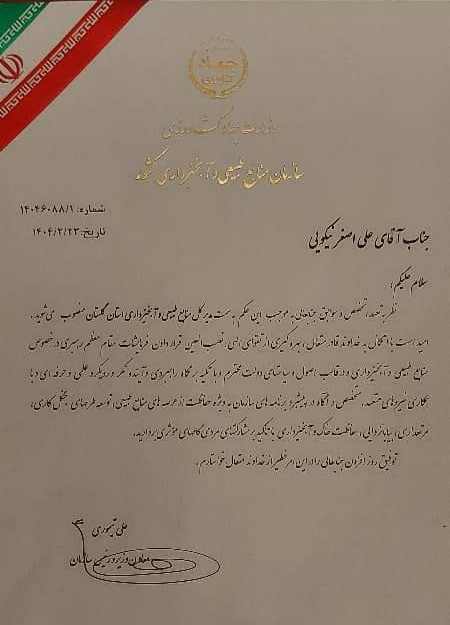 جهاد
کشاورزی
وزارت جهاد کشاورزی
سازمان منابع طبیعی و آبخیزداری کشور
شماره: ۱۴۰۴۶۰۸۸/۱
تاریخ: ۱۴۰۴/۲/۲۳
جناب آقای علی اصغر نیکویی
سلام علیکم؛
نظر به تعهد، تخصص و سوابق جنابعالی به موجب این حکم به سمت مدیر کل منابع طبیعی و آبخیزداری استان گلستان منصوب می‌شوید.
امید است با اتکالی به خداوند قادر متعال، بهره‌گیری از تقوای الهی، نصب العین قرار دادن فرمایشات مقام معظم رهبری در خصوص
منابع طبیعی و آبخیزداری و در قالب اصول و سیاستهای دولت محترم و با تکیه بر نگاه راهبردی و آینده نگر و رویکرد علمی و حرفه ای و با
بکاری نیروهای متعهد، متخصص و آگاه در پیشبرد برنامه های سازمان به ویژه حفاظت از عرصه های منابع طبیعی، توسعه طرحهای جنگل کاری،
مرتعداری، بیابانزدایی، حفاظت خاک و آبخیزداری با تکید بر مشارکتهای مردمی گامهای مؤثری بردارید.
توفیق روز افزون جنابعالی را در این امر خطیر از خداوند متعال خواستارم.
علی تیموری
معاون وزیر و رئیس سازمان